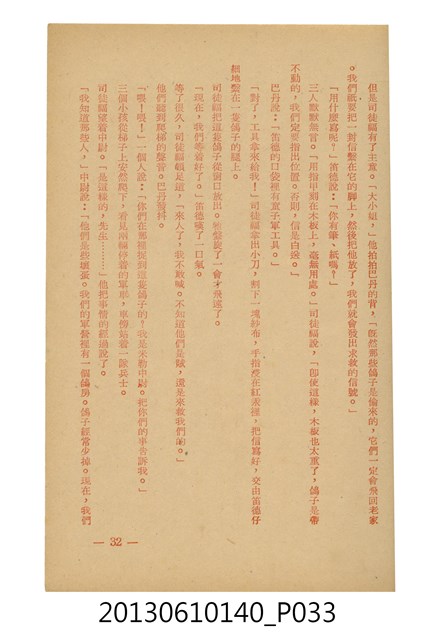 但是司徒福有了主意。「大小姐，」他拍拍巴丹的背，「旣然那些鴿子是偸來的，它們一定會飛回老家
。我們祇要把一封信繫在它的脚上，然後把他放了，我們就會發出求救的信號。」
「用什麼寫呢？」笛德說：「你有筆、紙嗎？」
三人默默無言。「用指甲刻在木板上，毫無用處。」司徒福說，「卽使這樣，木板也太重了，鴿子是帶
不動的，我們定要指出位置。否則，信是白送。」
巴丹說：「笛德的口袋裡有童子軍工具。」
「對了，工具拿來給我！」司徒福拿出小刀，割下一塊紗布，手指浸在紅藥裡，把信寫好，交由笛德仔
細地繫在一隻鴿子的腿上。
司徒福把這隻鴿子從窗口放出。牠盤旋了一會才飛遠了。
「現在，我們等着好了。」笛德嘆了一口氣。
等了很久，司徒福細走道，「來人了，我不敢喊。不知道他們是賊，還是來救我們的。」
他們聽到爬梯的聲音。巴丹發抖。
「喂！喂！」一個人說：「你們在那裡捉到這隻鴿子的！我是米勒中尉。把你們的事告訴我。」
三個小孩從梯子上安然爬下，看見兩輛停着的軍車，車傍站着一隊兵士。
司徒福望着中尉。「是這樣的，先生………」他把事情的經過說了。
「我知道那些人，」中尉說：「他們是些壞蛋。我們的軍營裡有一個鴿房。鴿子經常少掉。現在，我們
— 32 —
20130610140_P033